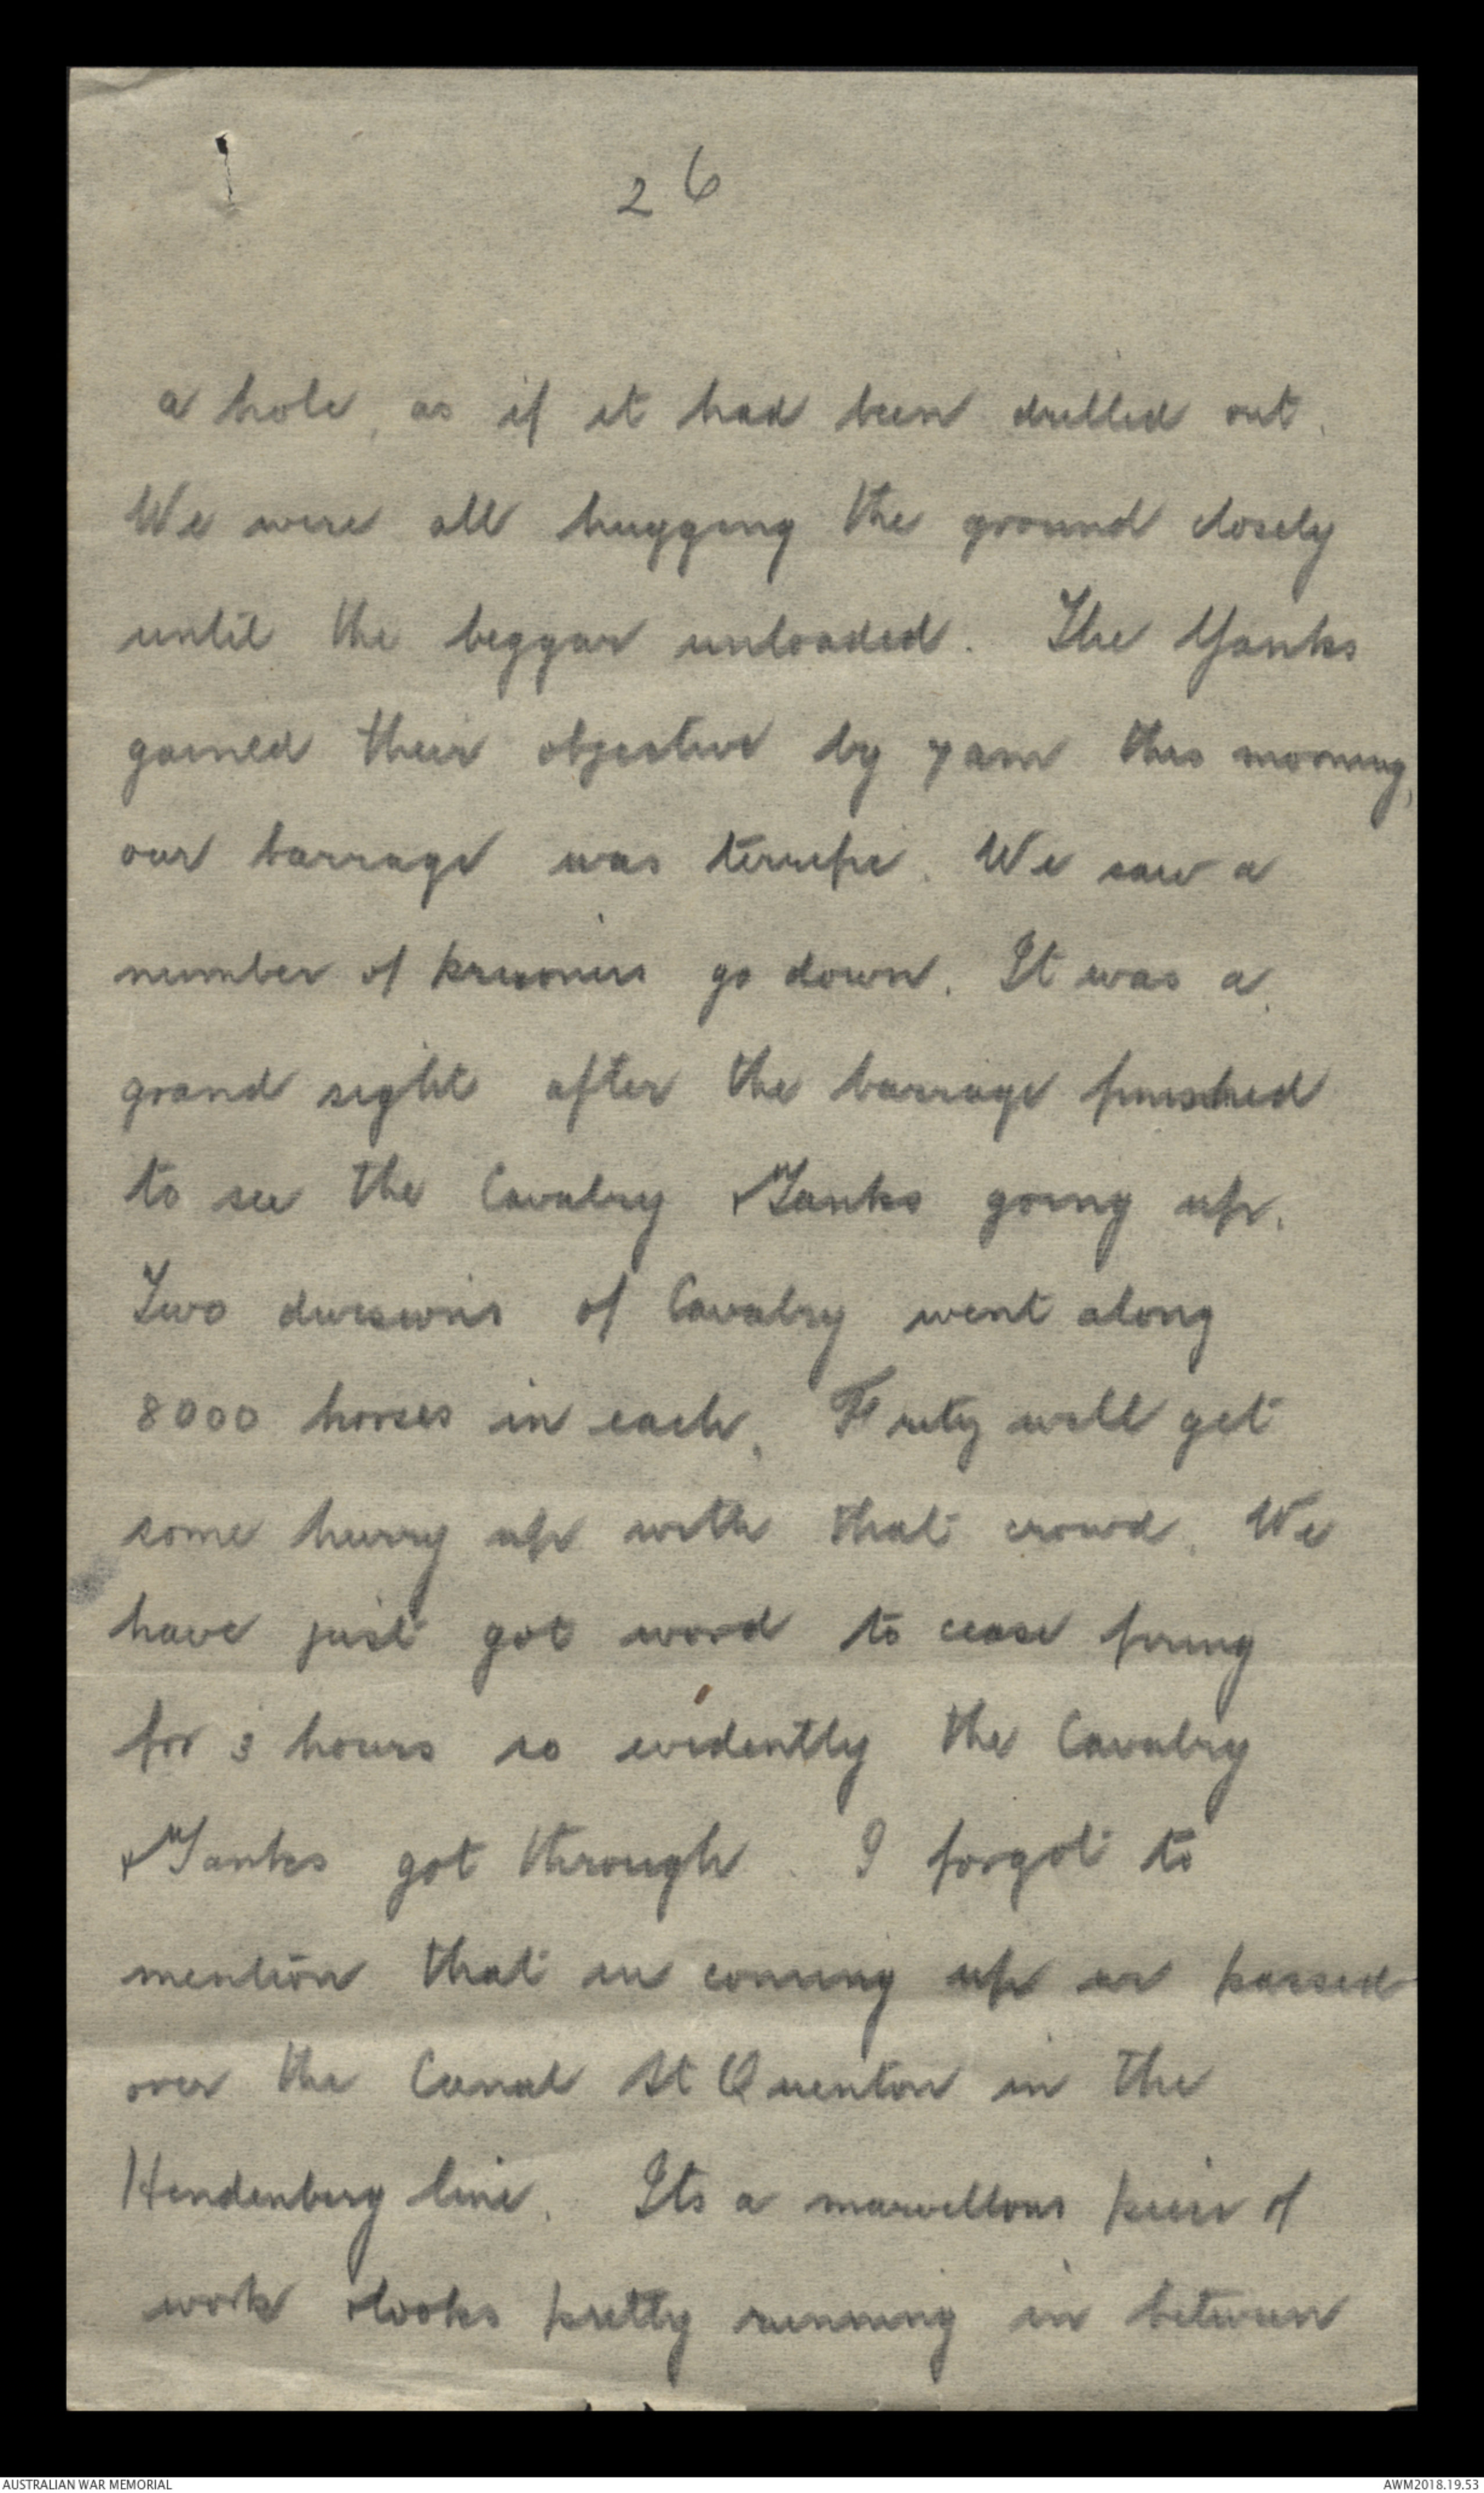 26
a hole, as if it had been drilled out.
We were all hugging the ground closely
until the beggar unloaded. The Yanks
gained their objective by 7am this morning,
our barrage was terrific. We saw a
number of prisoners go down. It was a
grand sight after the barrage finished
to see the Cavalry & Tanks going up.
Two divisions of Cavalry went along
8000 horses in each. Fritz will get
some hurry up with that crowd. We
have just got word to cease firing
for 3 hours so evidently the Cavalry
& Tanks got through. I forgot to
mention that in coming up we passed
over the Canal St Quenton in the
Hindenberg line. Its a marvellous piece of
work & looks pretty running in between
AUSTRALIAN WAR MEMORIAL
AWM2018.19.53